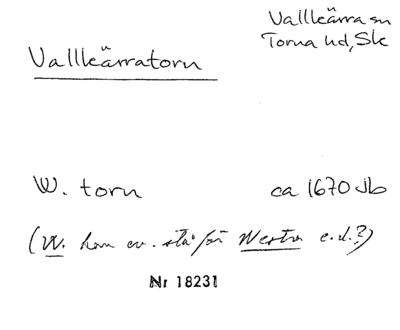 Vallkärra sn
Torna hd, Sk
Vallkärratorn
W. torn ca 1670 Jb
(W. kan ev. stå för Westra e.d.?)
Nr 18231